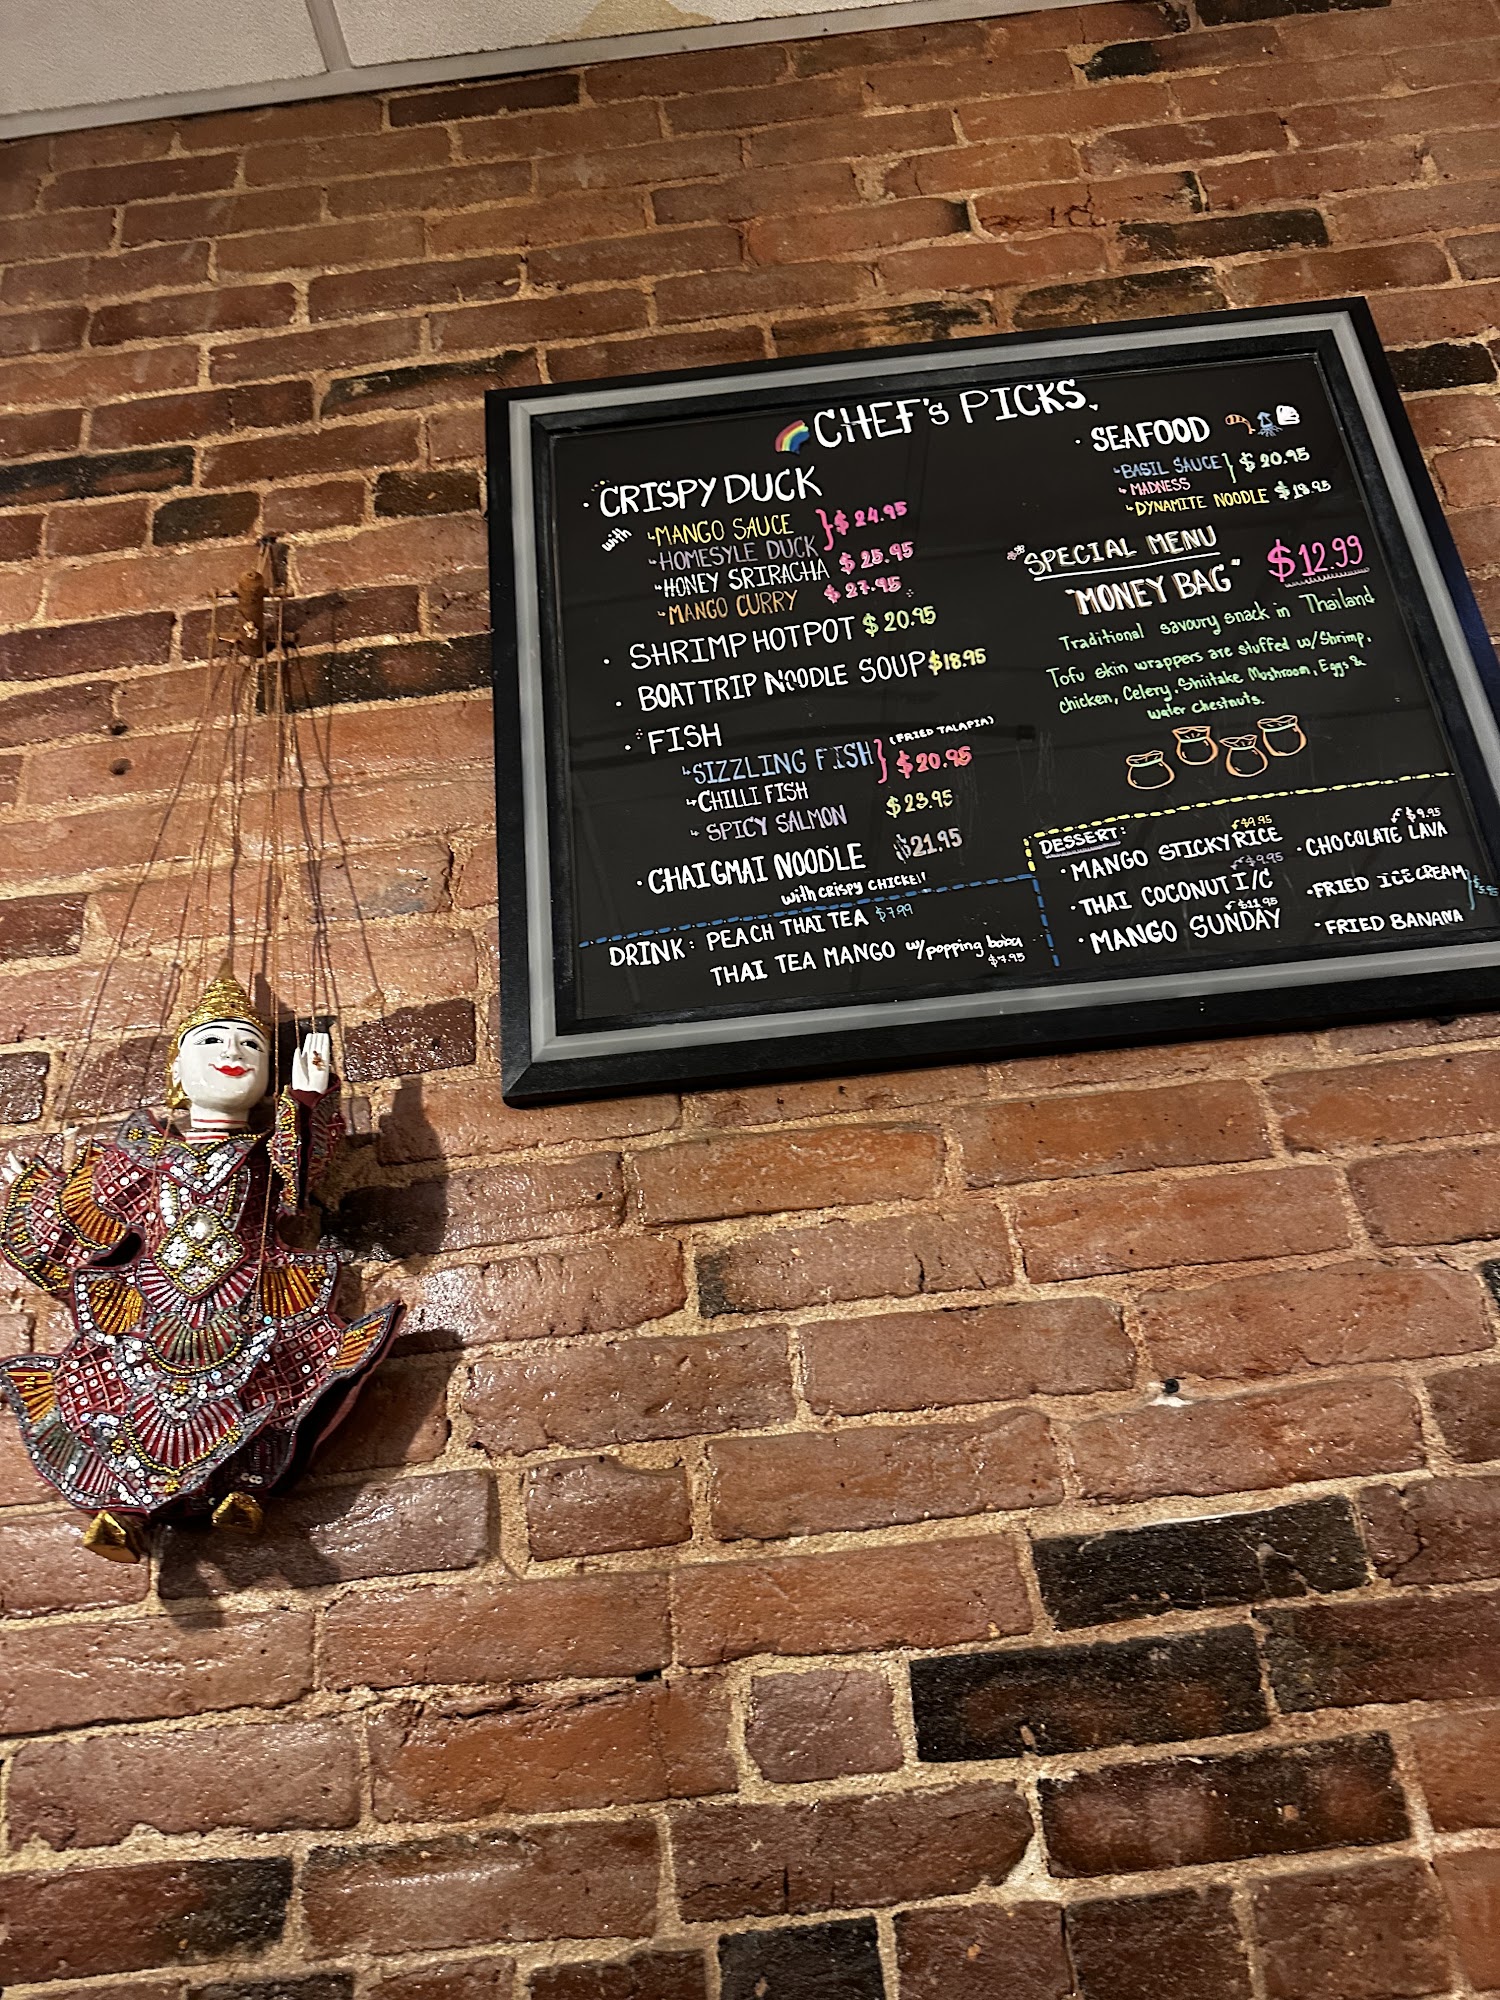 CHEF's PICKS
· CRISPY DUCK
with
MANGO SAUCE
HOMESYLE DUCK
$24.95
HONEY SRIRACHA $25.95
MANGO CURRY $27.95
· SHRIMP HOT POT $20.95
· BOATTRIP NOODLE SOUP $18.95
· FISH
SIZZLING FISH (FRIED TALAPIA)
CHILLI FISH
$20.95
SPICY SALMON $23.95
· CHAIGMAI NOODLE $21.95
with CRISPY CHICKEN
DRINK: PEACH THAI TEA $7.99
THAI TEA MANGO w/popping boba
$7.95
· SEAFOOD
BASIL SAUCE
MADNESS
$20.95
DYNAMITE NOODLE $18.95
SPECIAL MENU
"MONEY BAG" $12.99
Traditional savoury snack in Thailand
Tofu skin wrappers are stuffed w/Shrimp,
chicken, Celery, Shiitake Mushroom, Eggs &
water chestnuts.
DESSERT:
· MANGO STICKY RICE $9.95
· THAI COCONUT I/C $9.95
· MANGO SUNDAY $11.95
· CHOCOLATE LAVA $9.95
· FRIED ICECREAM
· FRIED BANANA